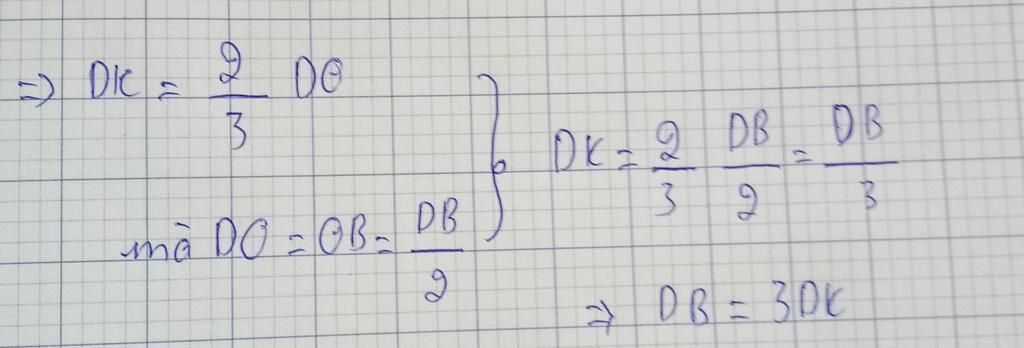 => DK = 2/3 DO
mà DO = OB = DB/2
} DK = 2/3 DB/2 = DB/3
=> DB = 3DK